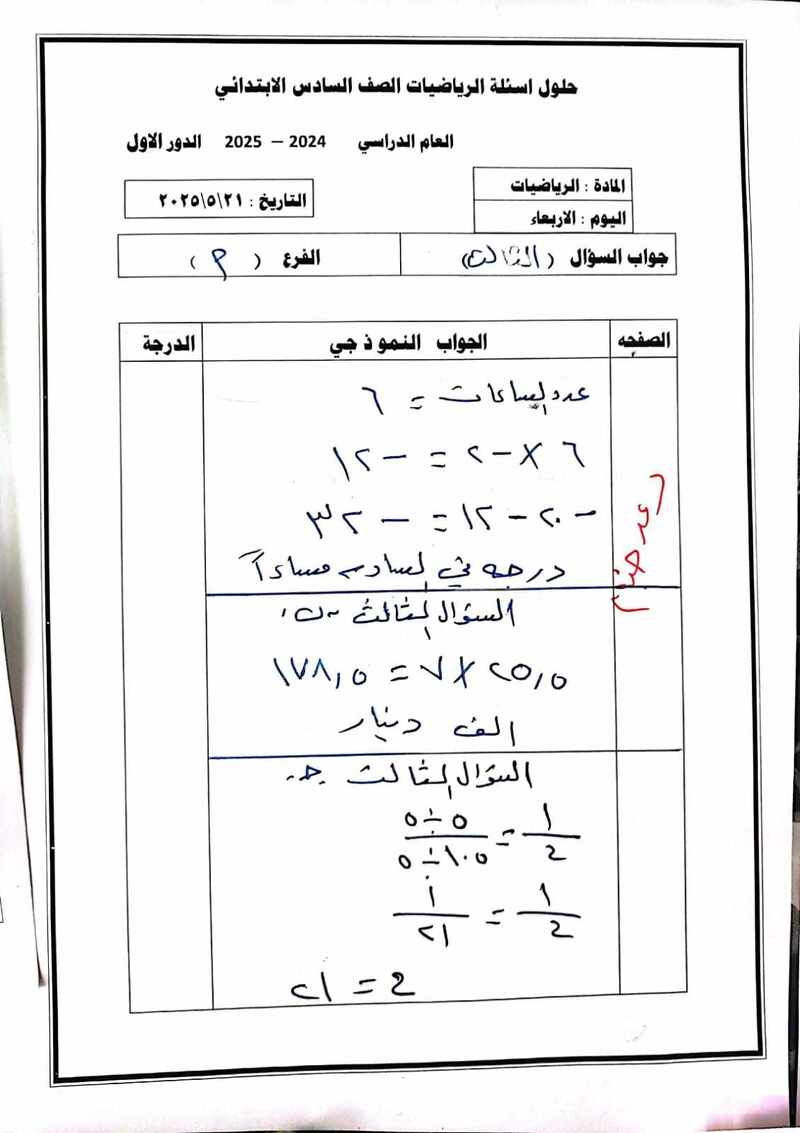 حلول اسئلة الرياضيات الصف السادس الابتدائي
العام الدراسي 2024 – 2025 الدور الاول
المادة : الرياضيات
التاريخ : ٢٠٢٥\٥\٢١
اليوم : الاربعاء
جواب السؤال (الثالث) الفرع ( م )
الصفحه الجواب النموذجي الدرجة
عدد الساعات = ٦
٦ × -٢ = -١٢
-٢٠ - ١٢ = -٣٢
درجه في السادسه مساءاً
السؤال الثالث ب،
٢٥,٥ × ٧ = ١٧٨,٥
الف دينار
السؤال الثالث ج.
٥ ÷ ٥ / ١٠٥ ÷ ٥ = ١ / ـى
١ / ٢١ = ١ / ـى
٢١ = ـى